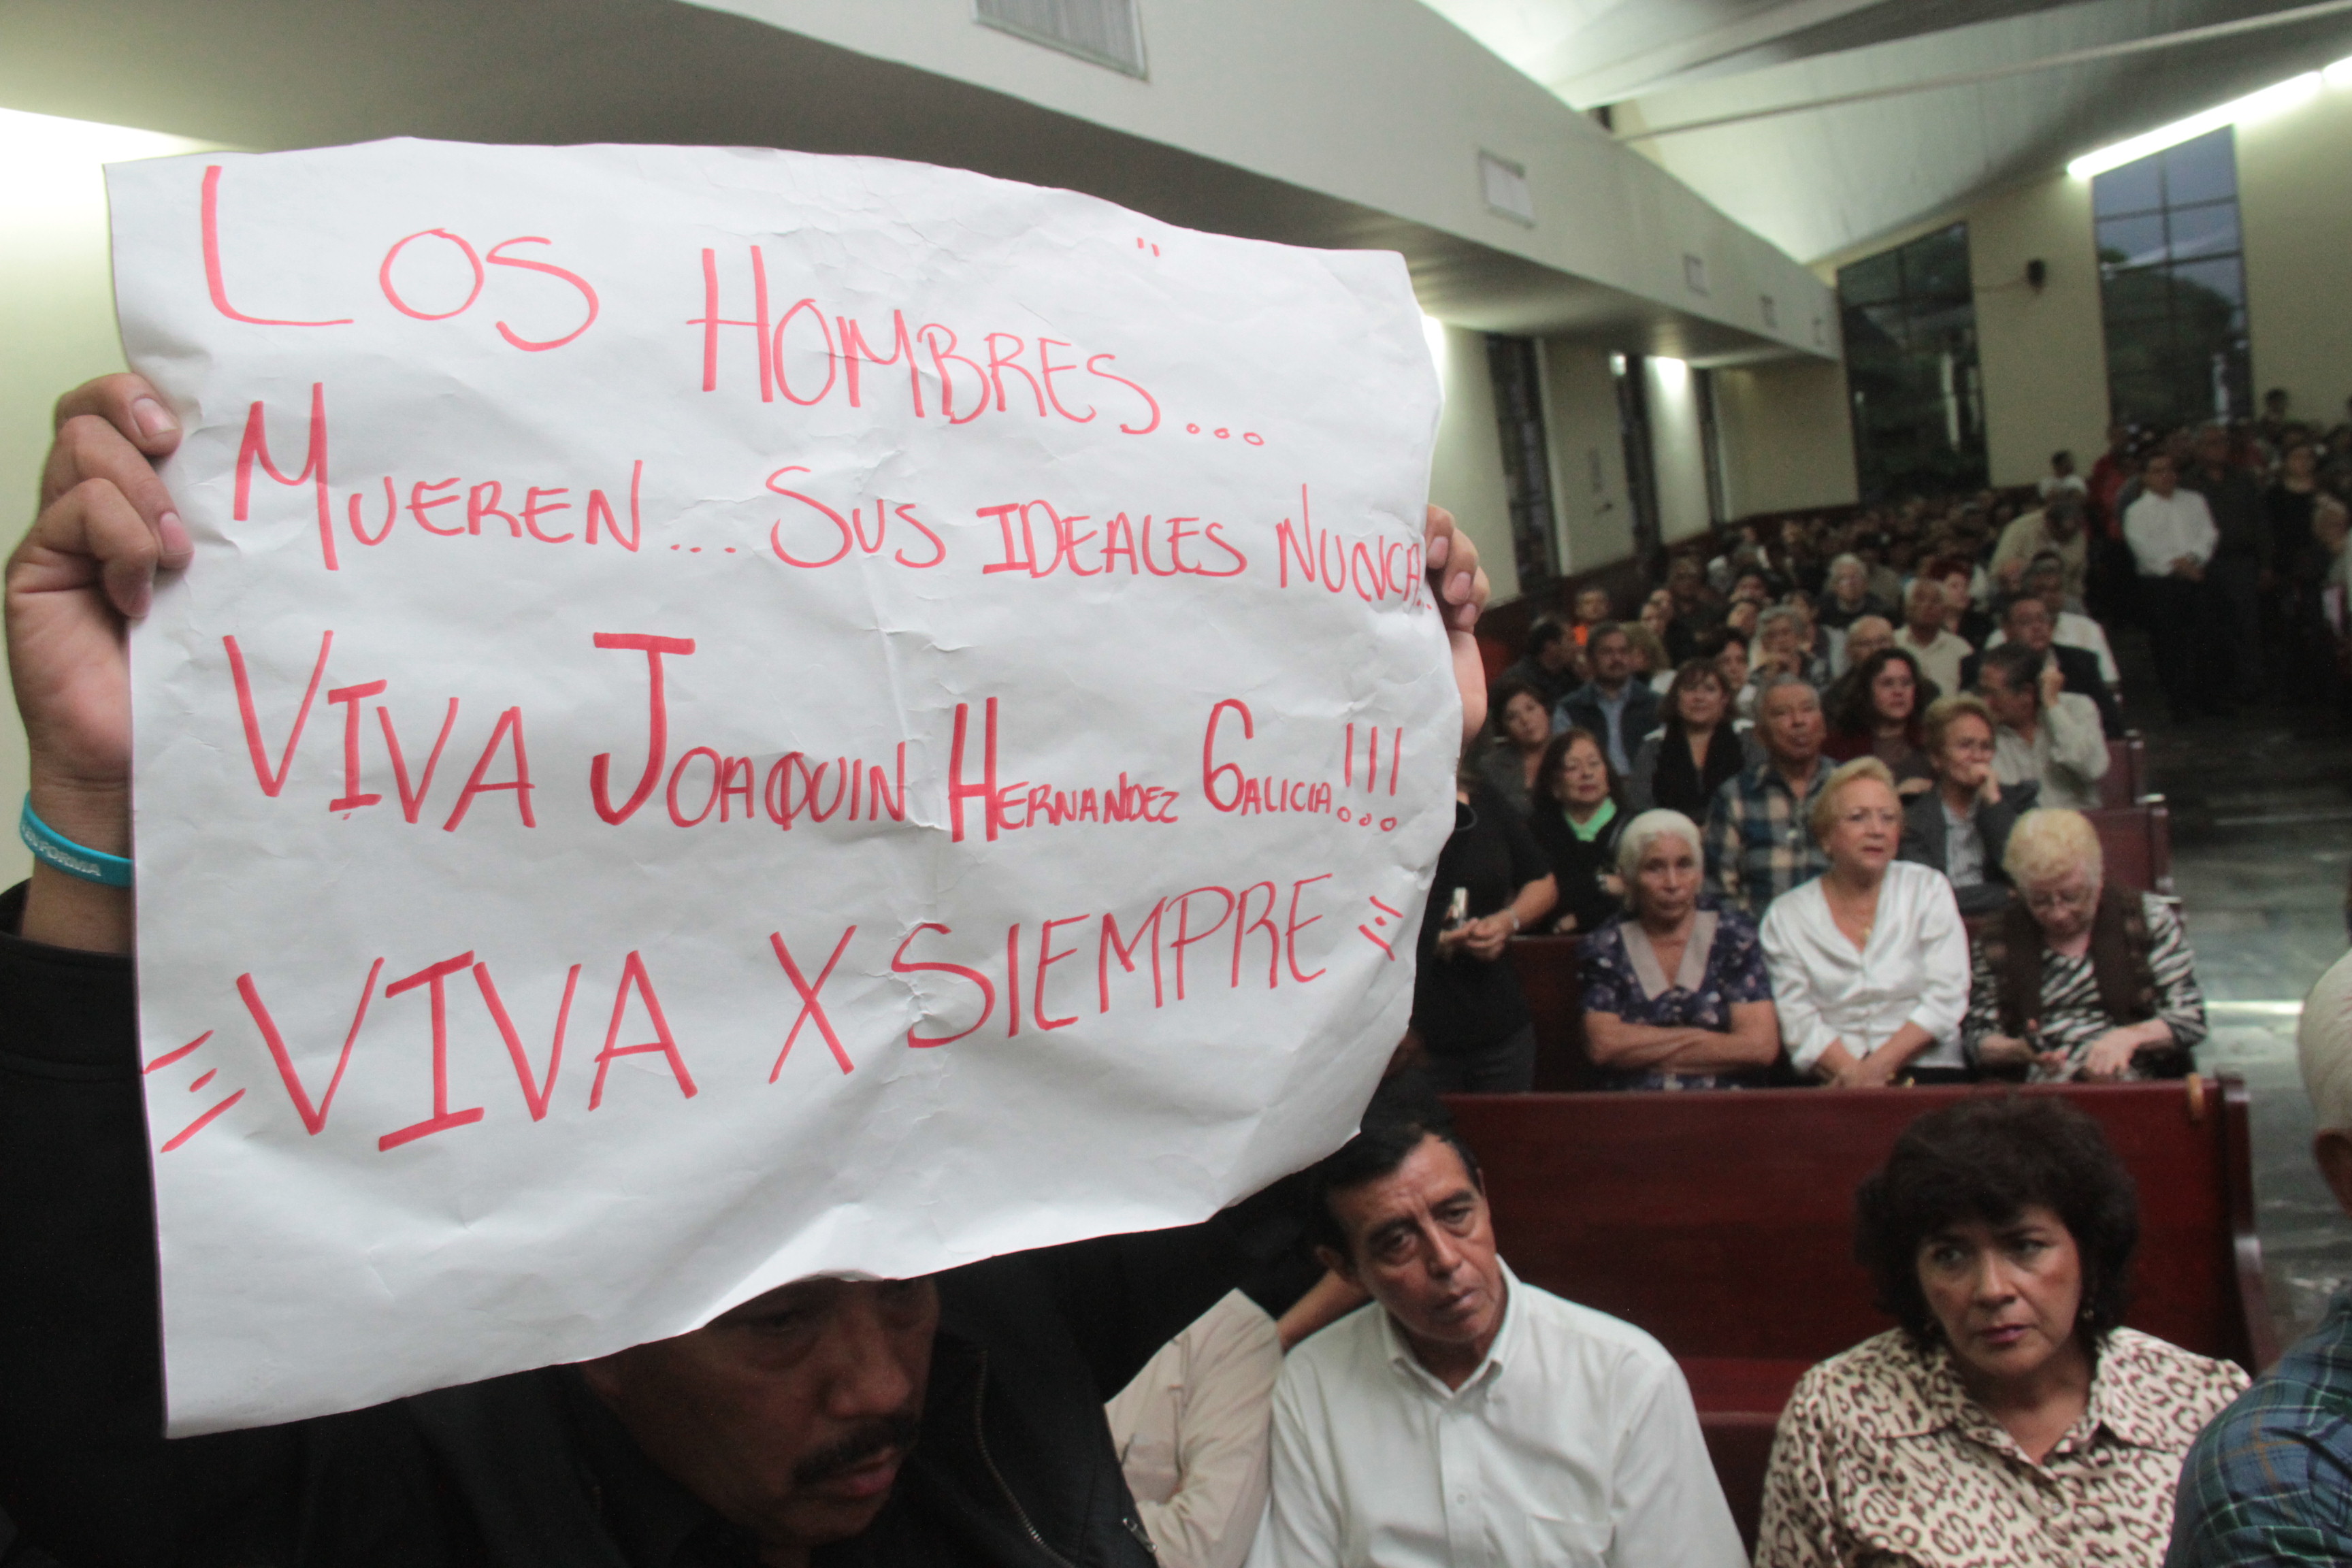 LOS HOMBRES... "
MUEREN... SUS IDEALES NUNCA..
VIVA JOAQUIN HERNANDEZ GALICIA!!!
VIVA X SIEMPRE